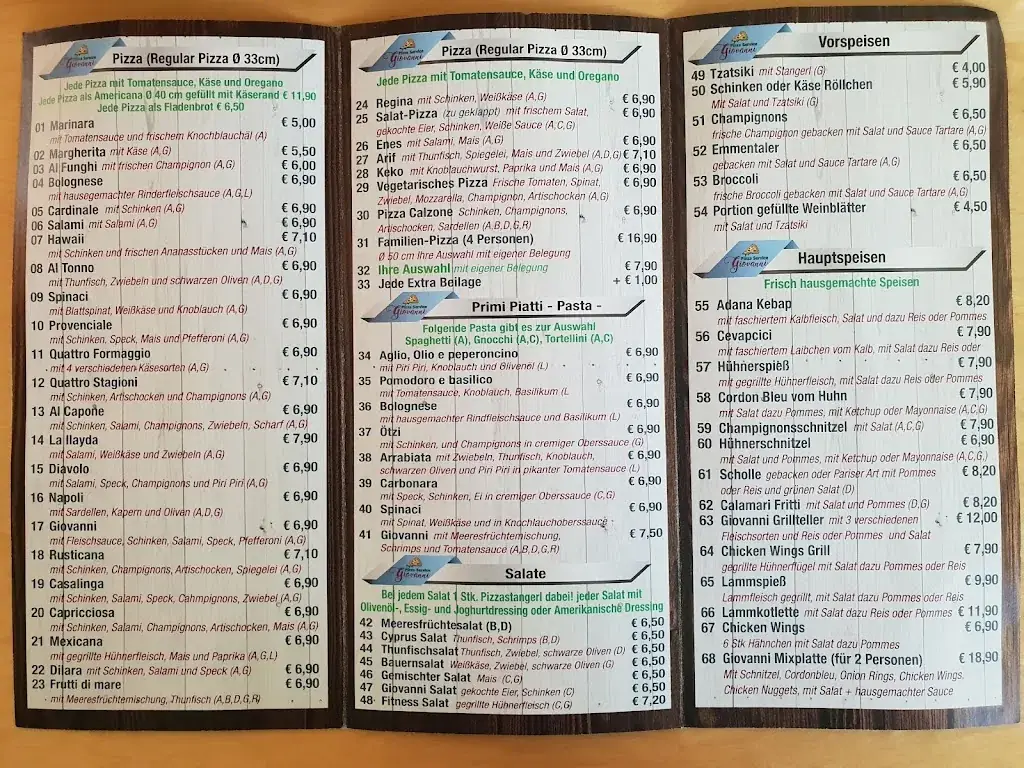 Pizza Service
Giovanni
Pizza (Regular Pizza Ø 33cm)
Jede Pizza mit Tomatensauce, Käse und Oregano
Jede Pizza als Americana Ø 40 cm gefüllt mit Käserand € 11,90
Jede Pizza als Fladenbrot € 6,50
01 Marinara € 5,00
mit Tomatensauce und frischem Knochblauchäl (A)
02 Margherita mit Käse (A,G) € 5,50
03 Al Funghi mit frischen Champignon (A,G) € 6,00
04 Bolognese € 6,90
mit hausegemachter Rinderfleischsauce (A,G,L)
05 Cardinale mit Schinken (A,G) € 6,90
06 Salami mit Salami (A,G) € 6,90
07 Hawaii € 7,10
mit Schinken und frischen Ananasstücken und Mais (A,G)
08 Al Tonno € 6,90
mit Thunfisch, Zwiebeln und schwarzen Oliven (A,D,G)
09 Spinaci € 6,90
mit Blattspinat, Weißkäse und Knoblauch (A,G)
10 Provenciale € 6,90
mit Schinken, Speck, Mais und Pfefferoni (A,G)
11 Quattro Formaggio € 6,90
mit 4 verschiedenen Käsesorten (A,G)
12 Quattro Stagioni € 7,10
mit Schinken, Artischocken und Champignons (A,G)
13 Al Capone € 6,90
mit Schinken, Salami, Champignons, Zwiebeln, Scharf (A,G)
14 La Ilayda € 7,90
mit Salami, Weißkäse und Zwiebeln (A,G)
15 Diavolo € 6,90
mit Salami, Speck, Champignons und Piri Piri (A,G)
16 Napoli € 6,90
mit Sardellen, Kapern und Oliven (A,D,G)
17 Giovanni € 6,90
mit Fleischsauce, Schinken, Salami, Speck, Pfefferoni (A,G)
18 Rusticana € 7,10
mit Schinken, Champignons, Artischocken, Spiegelei (A,G)
19 Casalinga € 6,90
mit Schinken, Salami, Speck, Cahmpignons, Zwiebel (A,G)
20 Capricciosa € 6,90
mit Schinken, Salami, Champignons, Artischocken, Mais (A,G)
21 Mexicana € 6,90
mit gegrillte Hühnerfleisch, Mais und Paprika (A,G,L)
22 Dilara mit Schinken, Salami und Speck (A,G) € 6,90
23 Frutti di mare € 6,90
mit Meeresfrüchtemischung, Thunfisch (A,B,D,G,R)
Pizza Service
Giovanni
Pizza (Regular Pizza Ø 33cm)
Jede Pizza mit Tomatensauce, Käse und Oregano
24 Regina mit Schinken, Weißkäse (A,G) € 6,90
25 Salat-Pizza (zu geklappt) mit frischem Salat, € 6,90
gekochte Eier, Schinken, Weiße Sauce (A,C,G)
26 Enes mit Salami, Mais (A,G) € 6,90
27 Arif mit Thunfisch, Spiegelei, Mais und Zwiebel (A,D,G) € 7,10
28 Keko mit Knoblauchwurst, Paprika und Mais (A,G) € 6,90
29 Vegetarisches Pizza Frische Tomaten, Spinat, € 6,90
Zwiebel, Mozzarella, Champignon, Artischocken (A,G)
30 Pizza Calzone Schinken, Champignons, € 6,90
Artischocken, Sardellen (A,B,D,G,R)
31 Familien-Pizza (4 Personen) € 16,90
Ø 50 cm Ihre Auswahl mit eigener Belegung
32 Ihre Auswahl mit eigener Belegung € 7,90
33 Jede Extra Beilage + € 1,00
Pizza Service
Giovanni
Primi Piatti - Pasta -
Folgende Pasta gibt es zur Auswahl
Spaghetti (A), Gnocchi (A,C), Tortellini (A,C)
34 Aglio, Olio e peperoncino € 6,90
mit Piri Piri, Knoblauch und Olivenöl (L)
35 Pomodoro e basilico € 6,90
mit Tomatensauce, Knoblauch, Basilikum (L)
36 Bolognese € 6,90
mit hausgemachter Rindfleischsauce und Basilikum (L)
37 Ötzi € 6,90
mit Schinken, und Champignons in cremiger Oberssauce (G)
38 Arrabiata mit Zwiebeln, Thunfisch, Knoblauch, € 6,90
schwarzen Oliven und Piri Piri in pikanter Tomatensauce (L)
39 Carbonara € 6,90
mit Speck, Schinken, Ei in cremiger Oberssauce (C,G)
40 Spinaci € 6,90
mit Spinat, Weißkäse und in Knochlauchoberssauce
41 Giovanni mit Meeresfrüchtemischung, € 7,50
Schrimps und Tomatensauce (A,B,D,G,R)
Pizza Service
Giovanni
Salate
Bei jedem Salat 1 Stk. Pizzastangerl dabei! jeder Salat mit
Olivenöl-, Essig- und Joghurtdressing oder Amerikanische Dressing
42 Meeresfrüchtesalat (B,D) € 6,50
43 Cyprus Salat Thunfisch, Schrimps (B,D) € 6,50
44 Thunfischsalat Thunfisch, Zwiebel, schwarze Oliven (D) € 6,50
45 Bauernsalat Weißkäse, Zwiebel, schwarze Oliven (G) € 6,50
46 Gemischter Salat Mais (C,G) € 6,50
47 Giovanni Salat gekochte Eier, Schinken (C) € 6,50
48 Fitness Salat gegrillte Hühnerfleisch (C,G) € 7,20
Pizza Service
Giovanni
Vorspeisen
49 Tzatsiki mit Stangerl (G) € 4,00
50 Schinken oder Käse Röllchen € 5,90
Mit Salat und Tzatsiki (G)
51 Champignons € 6,50
frische Champignon gebacken mit Salat und Sauce Tartare (A,G)
52 Emmentaler € 6,50
gebacken mit Salat und Sauce Tartare (A,G)
53 Broccoli € 6,50
frische Broccoli gebacken mit Salat und Sauce Tartare (A,G)
54 Portion gefüllte Weinblätter € 4,50
mit Salat und Tzatsiki
Pizza Service
Giovanni
Hauptspeisen
Frisch hausgemachte Speisen
55 Adana Kebap € 8,20
mit faschiertem Kalbfleisch, Salat und dazu Reis oder Pommes
56 Cevapcici € 7,90
mit faschiertem Laibchen vom Kalb, mit Salat dazu Reis oder
57 Hühnerspieß € 7,90
mit gegrillte Hühnerfleisch, mit Salat dazu Reis oder Pommes
58 Cordon Bleu vom Huhn € 7,90
mit Salat dazu Pommes, mit Ketchup oder Mayonnaise (A,C,G)
59 Champignonsschnitzel mit Salat (A,C,G) € 7,90
60 Hühnerschnitzel € 6,90
mit Salat und Pommes, mit Ketchup oder Mayonnaise (A,C,G,)
61 Scholle gebacken oder Pariser Art mit Pommes € 8,20
oder Reis und grünen Salat (D)
62 Calamari Fritti mit Salat und Pommes (D,G) € 8,20
63 Giovanni Grillteller mit 3 verschiedenen € 12,00
Fleischsorten und Reis oder Pommes und Salat
64 Chicken Wings Grill € 7,90
gegrillte Hühnerflügel mit Salat dazu Pommes oder Reis
65 Lammspieß € 9,90
Lammfleisch gegrillt, mit Salat dazu Pommes oder Reis
66 Lammkotlette mit Salat dazu Reis oder Pommes € 11,90
67 Chicken Wings € 6,90
6 Stk Hähnchen mit Salat dazu Pommes
68 Giovanni Mixplatte (für 2 Personen) € 18,90
Mit Schnitzel, Cordonbleu, Onion Rings, Chicken Wings,
Chicken Nuggets, mit Salat + hausgemachter Sauce